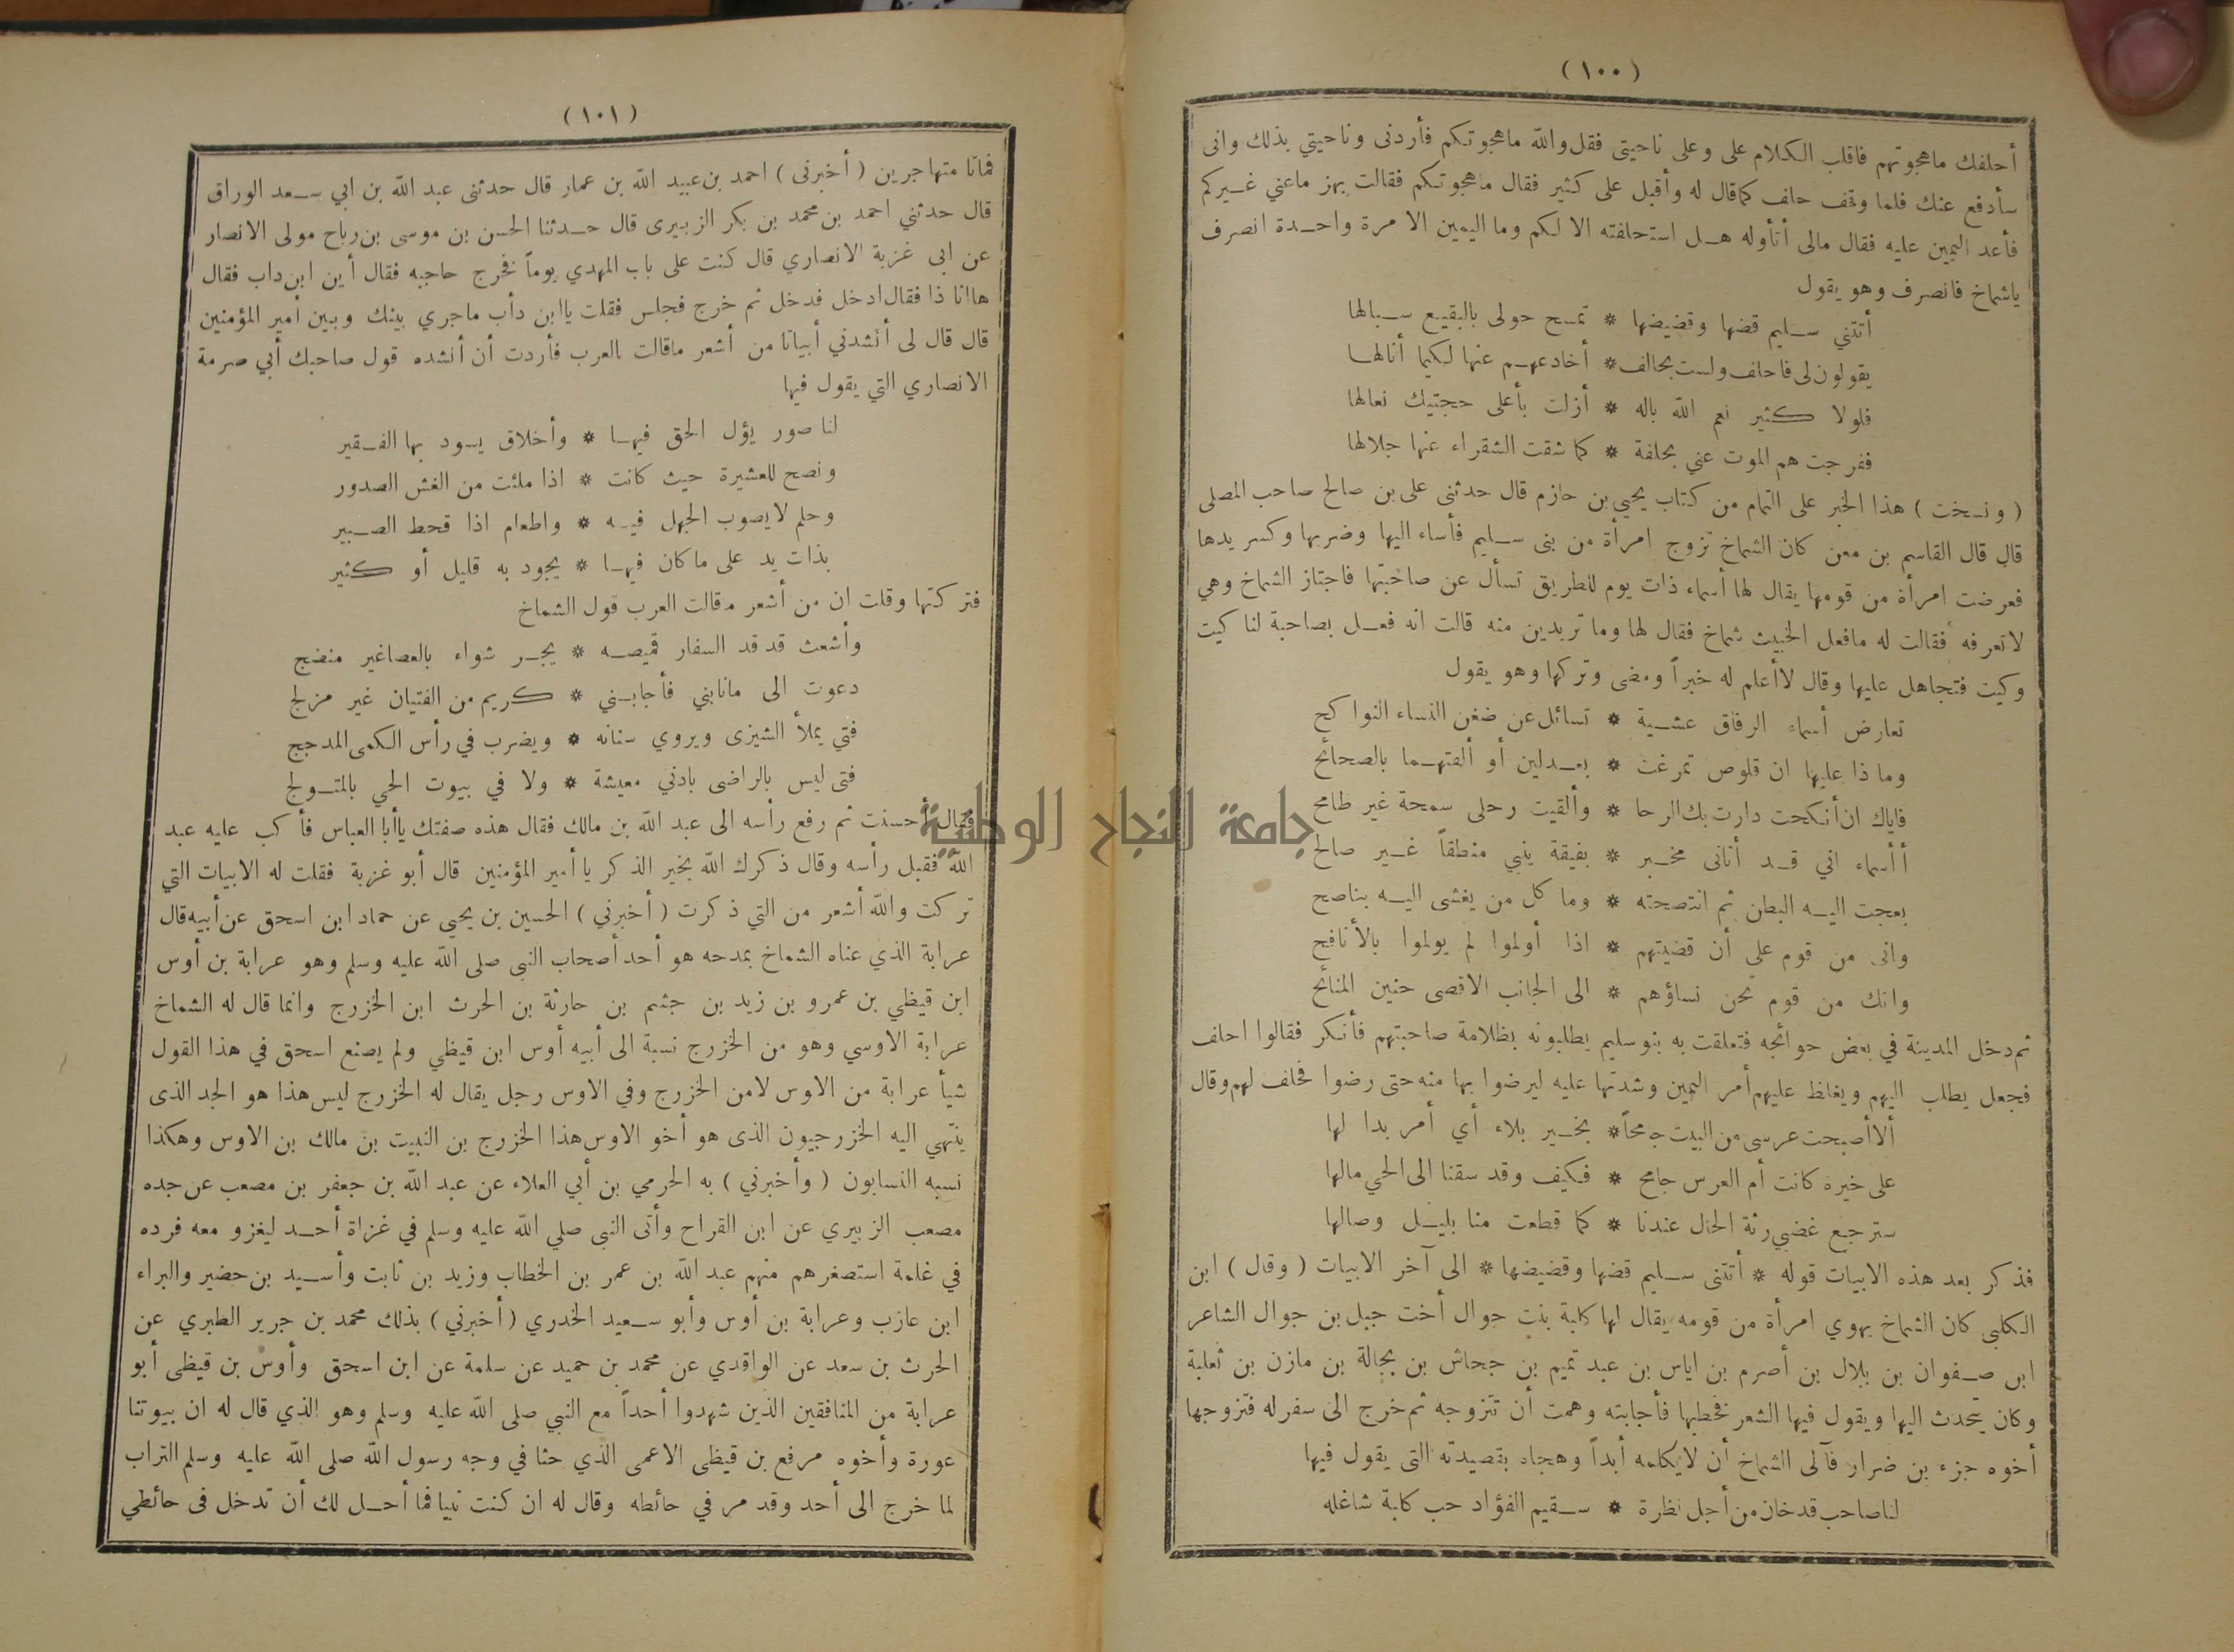 (١٠٠)
أحلفك ماهجوتهم فاقلب الكلام على وعلى ناحيتى فقل والله ماهجوتكم فأردنى وناحيتي بذلك وانى
سأدفع عنك فلما وقف حلف كماقال له وأقبل على كثير فقال ماهجوتكم فقالت بهز ماعني غيركم
فأعد اليمين عليه فقال مالى أتأوله هل استحلفته الا لكم وما اليمين الا مرة واحدة انصرف
ياشماخ فانصرف وهو يقول
أتتني سليم قضها وقضيضها * تمسح حولى بالبقيع سبالها
يقولون لى فاحلف ولست بحالف * أخادعهم عنها لكيما أنالها
فلولا كثير نعم الله باله * أزلت بأعلى حجتيك نعالها
ففرجت هم الموت عني بحلفة * كما شقت الشقراء عنها جلالها
(ونسخت) هذا الخبر على التمام من كتاب يحيي بن حازم قال حدثنى على بن صالح صاحب المصلى
قال قال القاسم بن معن كان الشماخ تزوج امرأة من بنى سليم فأساء اليها وضربها وكسر يدها
فعرضت امرأة من قومها يقال لها أسماء ذات يوم للطريق تسأل عن صاحبتها فاجتاز الشماخ وهي
لاتعرفه فقالت له مافعل الخبيث شماخ فقال لها وما تريدين منه قالت انه فعل بصاحبة لنا كيت
وكيت فتجاهل عليها وقال لاأعلم له خبراً ومضى وتركها وهو يقول
تعارض أسماء الرفاق عشية * تسائل عن ضغن النساء النواكح
وماذا عليها ان قلوص تمرغت * بعدلين أو ألقتهما بالصحائح
فاياك ان أنكحت دارت بك الرحا * وألقيت رحلى سمحة غير طامح
أأسماء اني قد أتانى مخبر * بفيقة ينبي منطقاً غير صالح
بعجت اليه البطن ثم انتصحته * وما كل من يغشى اليه بناصح
وانى من قوم على أن قضيتهم * اذا أولموا لم يولموا بالأنافح
وانك من قوم تحن نساؤهم * الى الجانب الاقصى حنين المنائح
ثم دخل المدينة في بعض حوائجه فتعلقت به بنوسليم يطلبونه بظلامة صاحبتهم فأنكر فقالوا احلف
فجعل يطلب اليهم ويغلظ عليهم أمر اليمين وشدتها عليه ليرضوا بها منه حتى رضوا فحلف لهم وقال
ألا أصبحت عرسى من البيت جامحاً * بخير بلاء أي أمر بدا لها
على خيرة كانت أم العرس جامح * فكيف وقد سقنا الى الحي مالها
سترجع غضبي رثة الحال عندنا * كما قطعت منا بليل وصالها
فذكر بعد هذه الابيات قوله * أتتنى سليم قضها وقضيضها * الى آخر الابيات (وقال) ابن
الكلبى كان الشماخ يهوي امرأة من قومه يقال لها كلبة بنت جوال أخت جبل بن جوال الشاعر
ابن صفوان بن بلال بن أصرم بن اياس بن عبد تميم بن جحاش بن بجالة بن مازن بن ثعلبة
وكان يتحدث اليها ويقول فيها الشعر فخطبها فأجابته وهمت أن تتزوجه ثم خرج الى سفر له فتزوجها
أخوه جزء بن ضرار فآلى الشماخ أن لايكلمه أبداً وهجاه بقصيدته التى يقول فيها
لنا صاحب قد خان من أجل نظرة * سقيم الفؤاد حب كلبة شاغله
(١٠١)
فماتا متهاجرين (أخبرنى) احمد بن عبيد الله بن عمار قال حدثنى عبد الله بن ابي سعد الوراق
قال حدثني احمد بن محمد بن بكر الزبيرى قال حدثنا الحسن بن موسى بن رباح مولى الانصار
عن ابى غزية الانصاري قال كنت على باب المهدي يوماً فخرج حاجبه فقال أين ابن داب فقال
هاانا ذا فقال ادخل فدخل ثم خرج فجلس فقلت ياابن دأب ماجري بينك وبين أمير المؤمنين
قال قال لى أنشدني أبياتا من أشعر ماقالت العرب فأردت أن أنشده قول صاحبك أبي صرمة
الانصاري التي يقول فيها
لنا صور يؤل الحق فيها * وأخلاق يسود بها الفقير
ونصح للعشيرة حيث كانت * اذا ملئت من الغش الصدور
وحلم لايصوب الجهل فيه * واطعام اذا قحط الصبير
بذات يد على ماكان فيها * يجود به قليل أو كثير
فتركتها وقلت ان من أشعر مقالت العرب قول الشماخ
وأشعث قد قد السفار قميصه * يجر شواء بالعصاغير منضج
دعوت الى مانابني فأجابني * كريم من الفتيان غير مزلج
فتي يملأ الشيزى ويروي سنانه * ويضرب في رأس الكمى المدجج
فتى ليس بالراضى بادني معيشة * ولا في بيوت الحي بالمتولج
فقال أحسنت ثم رفع رأسه الى عبد الله بن مالك فقال هذه صفتك ياأبا العباس فأكب عليه عبد
الله فقبل رأسه وقال ذكرك الله بخير الذكر يا أمير المؤمنين قال أبو غزية فقلت له الابيات التي
تركت والله أشعر من التي ذكرت (أخبرني) الحسين بن يحيي عن حماد ابن اسحق عن أبيه قال
عرابة الذي عناه الشماخ بمدحه هو أحد أصحاب النبى صلى الله عليه وسلم وهو عرابة بن أوس
ابن قيظي بن عمرو بن زيد بن جشم بن حارثة بن الحرث ابن الخزرج وانما قال له الشماخ
عرابة الاوسي وهو من الخزرج نسبة الى أبيه أوس ابن قيظي ولم يصنع اسحق في هذا القول
شيأ عرابة من الاوس لامن الخزرج وفي الاوس رجل يقال له الخزرج ليس هذا هو الجد الذى
ينتهي اليه الخزرجيون الذى هو أخو الاوس هذا الخزرج بن النبيت بن مالك بن الاوس وهكذا
نسبه النسابون (وأخبرني) به الحرمي بن أبي العلاء عن عبد الله بن جعفر بن مصعب عن جده
مصعب الزبيري عن ابن القراح وأتى النبى صلي الله عليه وسلم في غزاة أحد ليغزو معه فرده
في غلمة استصغرهم منهم عبد الله بن عمر بن الخطاب وزيد بن ثابت وأسيد بن حضير والبراء
ابن عازب وعرابة بن أوس وأبو سعيد الخدري (أخبرني) بذلك محمد بن جرير الطبري عن
الحرث بن سعد عن الواقدي عن محمد بن حميد عن سلمة عن ابن اسحق وأوس بن قيظى أبو
عرابة من المنافقين الذين شهدوا أحداً مع النبي صلى الله عليه وسلم وهو الذي قال له ان بيوتنا
عورة وأخوه مرفع بن قيظى الاعمى الذي حثا في وجه رسول الله صلى الله عليه وسلم التراب
لما خرج الى أحد وقد مر في حائطه وقال له ان كنت نبيا فما أحل لك أن تدخل فى حائطي
جامعة النجاح الوطنية